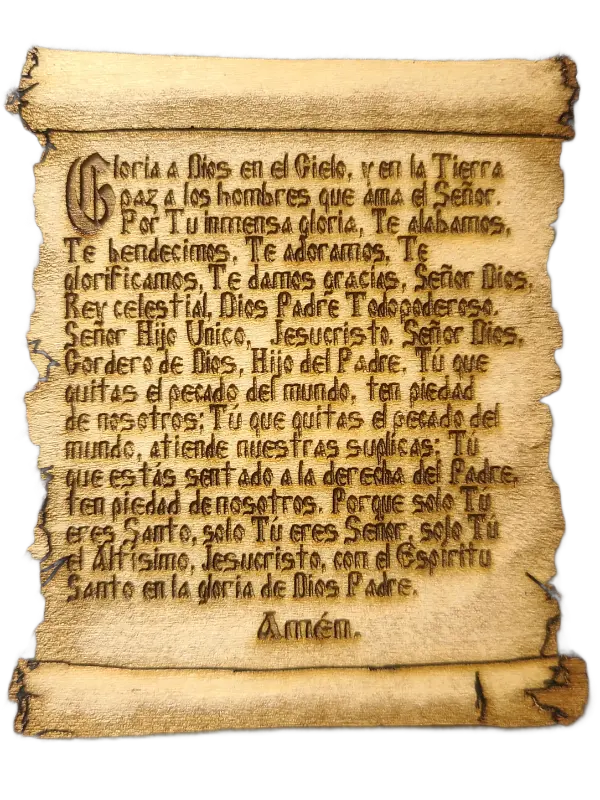 Gloria a Dios en el Cielo, y en la Tierra
paz a los hombres que ama el Señor.
Por Tu inmensa gloria, Te alabamos,
Te bendecimos, Te adoramos, Te
glorificamos, Te damos gracias, Señor Dios,
Rey celestial, Dios Padre Todopoderoso.
Señor Hijo Unico, Jesucristo. Señor Dios,
Cordero de Dios, Hijo del Padre. Tú que
quitas el pecado del mundo, ten piedad
de nosotros; Tú que quitas el pecado del
mundo, atiende nuestras suplicas; Tú
que estás sentado a la derecha del Padre,
ten piedad de nosotros. Porque solo Tú
eres Santo, solo Tú eres Señor, solo Tú
el Altísimo, Jesucristo, con el Espiritu
Santo en la gloria de Dios Padre.
Amén.